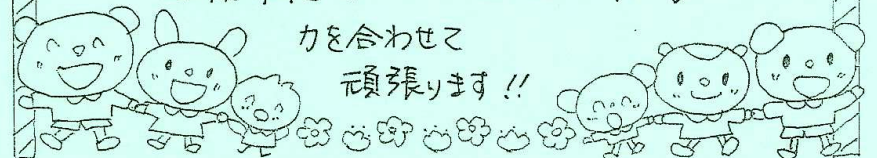 力を合わせて
頑張ります!!